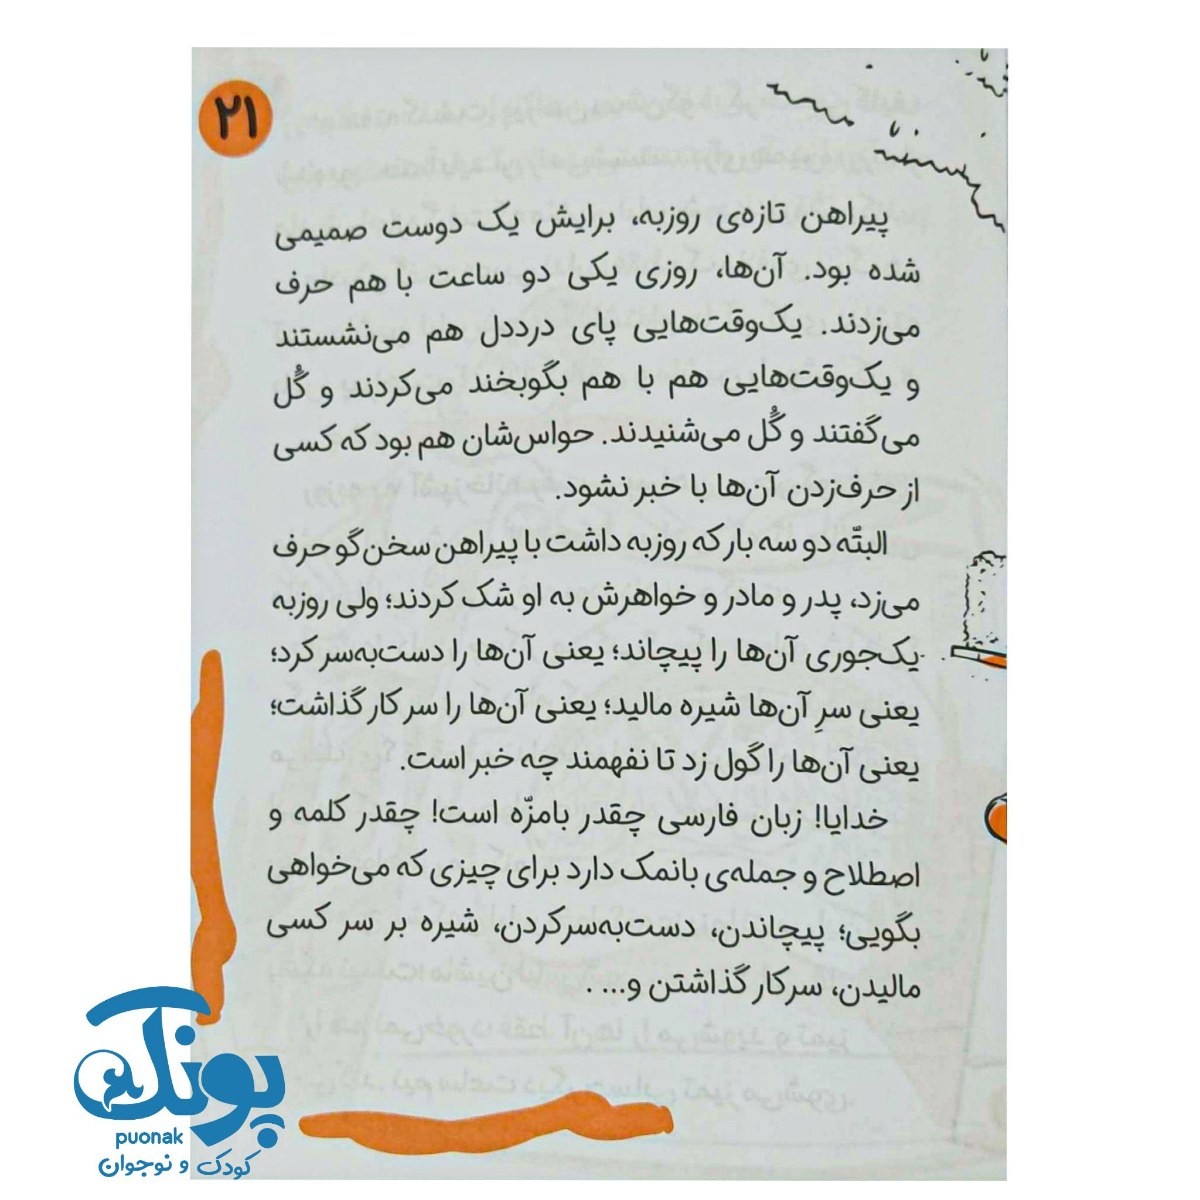 ۲۱
پیراهن تازه‌ی روزبه، برایش یک دوست صمیمی
شده بود. آن‌ها، روزی یکی دو ساعت با هم حرف
می‌زدند. یک‌وقت‌هایی پای درددل هم می‌نشستند
و یک‌وقت‌هایی هم با هم بگوبخند می‌کردند و گُل
می‌گفتند و گُل می‌شنیدند. حواس‌شان هم بود که کسی
از حرف‌زدن آن‌ها با خبر نشود.
البتّه دو سه بار که روزبه داشت با پیراهن سخن‌گو حرف
می‌زد، پدر و مادر و خواهرش به او شک کردند؛ ولی روزبه
یک‌جوری آن‌ها را پیچاند؛ یعنی آن‌ها را دست‌به‌سر کرد؛
یعنی سرِ آن‌ها شیره مالید؛ یعنی آن‌ها را سر کار گذاشت؛
یعنی آن‌ها را گول زد تا نفهمند چه خبر است.
خدایا! زبان فارسی چقدر بامزّه است! چقدر کلمه و
اصطلاح و جمله‌ی بانمک دارد برای چیزی که می‌خواهی
بگویی؛ پیچاندن، دست‌به‌سرکردن، شیره بر سر کسی
مالیدن، سرکار گذاشتن و... .
پونک
puonak
کودک و نوجوان